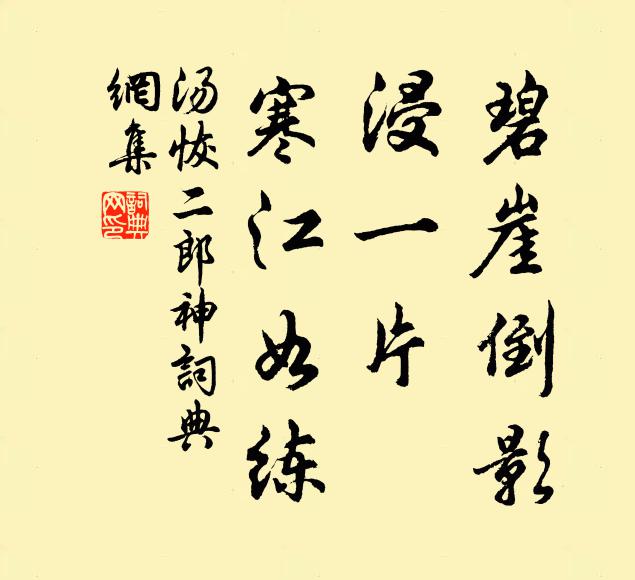 碧崖倒影
浸一片
寒江如练
汤恢二郎神詞典
網集
詞典
网印